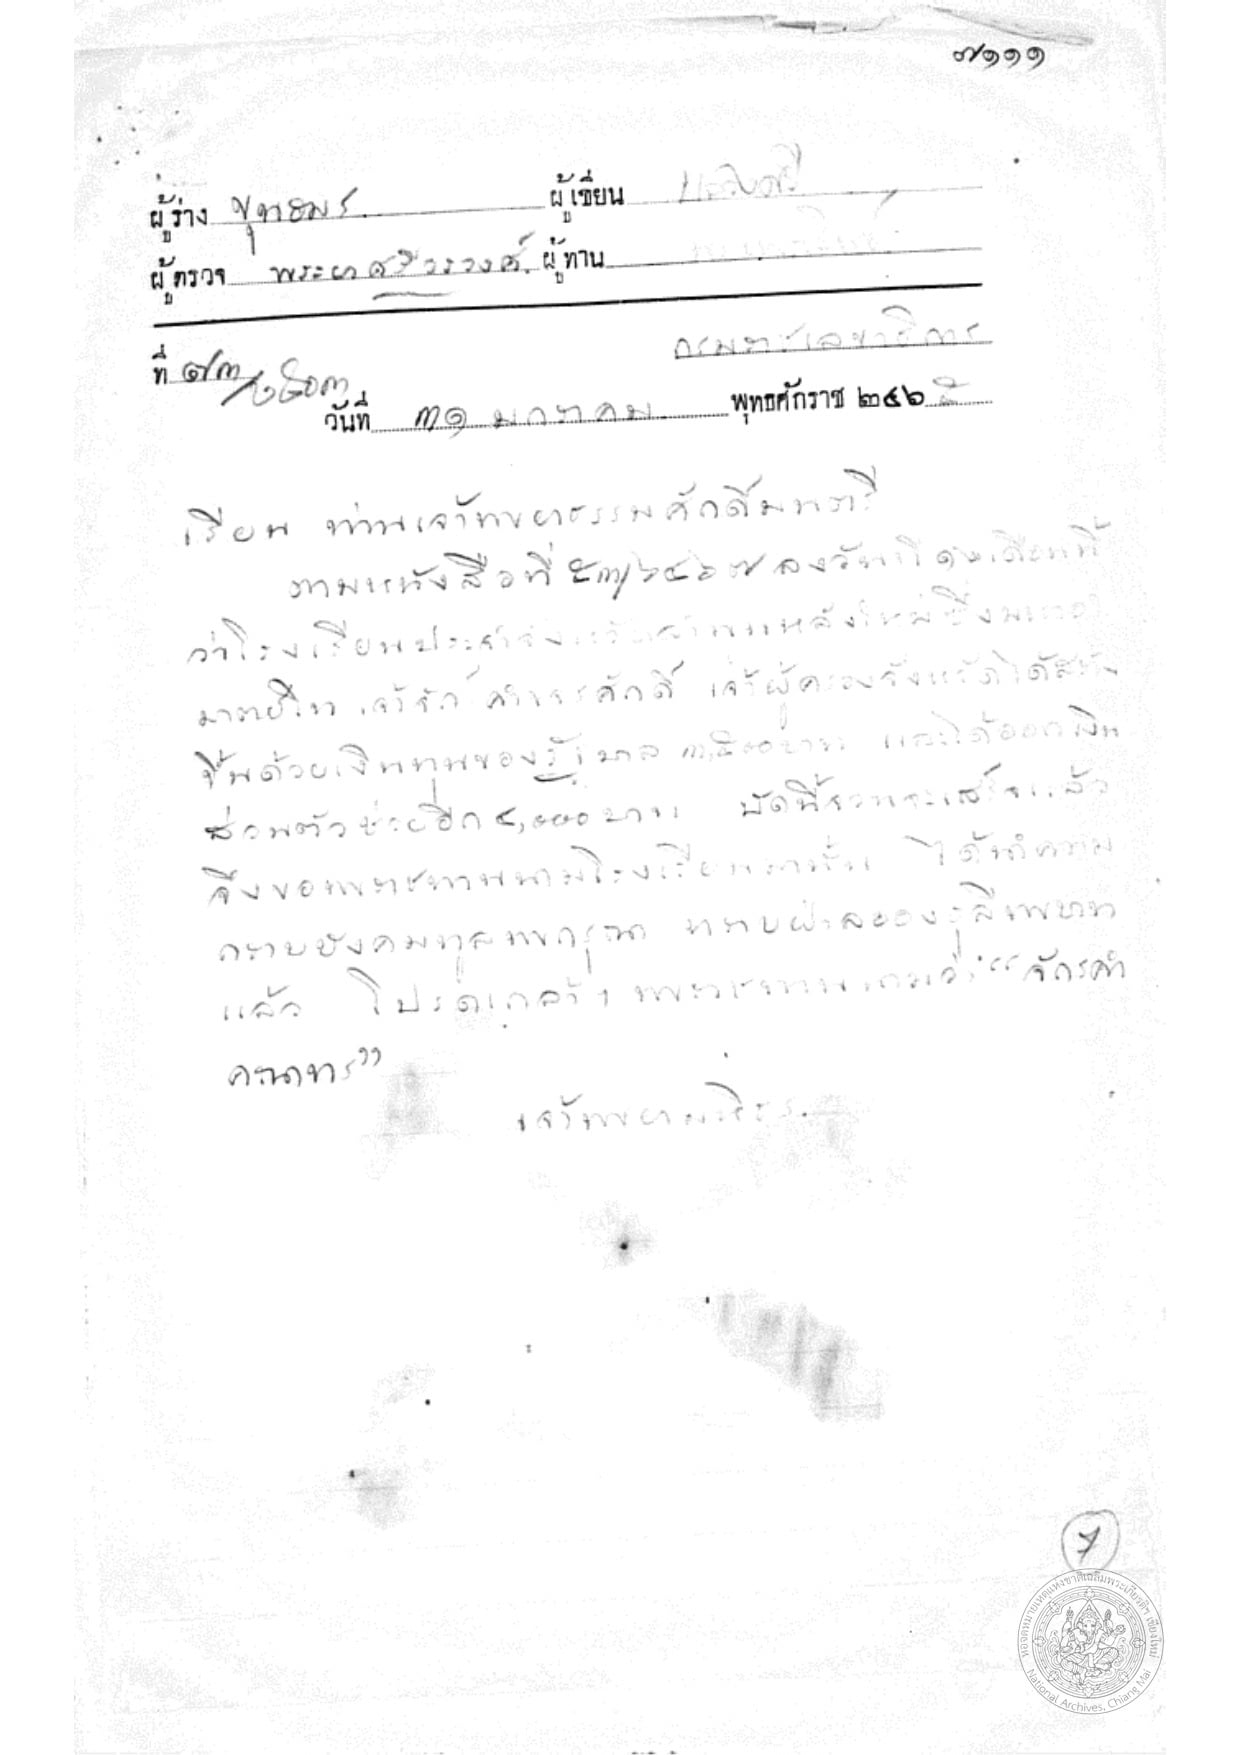 ๗๑๑๑
ผู้ร่าง ขุทอมร ผู้เขียน
ผู้ตรวจ พระยาศรีวรวงศ์ ผู้ทาน
กรมราชเลขาธิการ
ที่ ๗๓/
วันที่ ๓๑ มกราคม พุทธศักราช ๒๔๖
เรียน ท่านเจ้าพระยาธรรมศักดิ์มนตรี
ตามหนังสือที่ ๕๓/๒๔๖๗ ลงวันที่ ๑๖ เดือนนี้
ว่าโรงเรียนประจำจังหวัดลำพูนหลังใหม่ซึ่ง
เจ้าจักรคำขจรศักดิ์ เจ้าผู้ครองจังหวัดได้สร้าง
ขึ้นด้วยเงินทุนของรัฐบาล ๓,๕๐๐ บาท และได้ออกเงิน
ส่วนตัวช่วยอีก ๔,๐๐๐ บาท บัดนี้จวนจะเสร็จแล้ว
จึงขอพระราชทานนามโรงเรียน ได้นำความ
กราบบังคมทูลพระกรุณา ทราบฝ่าละอองธุลีพระบาท
แล้ว โปรดเกล้าฯ พระราชทานนามว่า “จักรคำ
คณาทร”
เจ้าพระยามหิธร
7
หอจดหมายเหตุแห่งชาติเฉลิมพระเกียรติฯ เชียงใหม่
National Archives, Chiang Mai